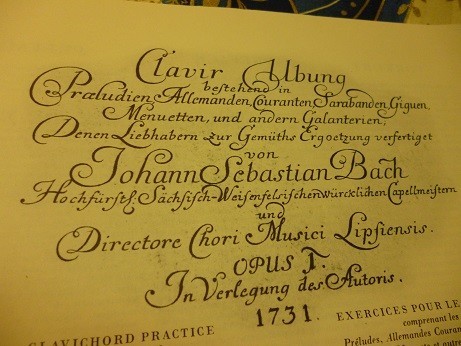 Clavir Ubung
bestehend in
Præludien, Allemanden, Couranten, Sarabanden, Giguen,
Menuetten, und andern Galanterien;
Denen Liebhabern zur Gemüths Ergoetzung verfertiget
von
Johann Sebastian Bach
Hochfürstl: Sächsisch-Weisenfelsischen würcklichen Capellmeistern
und
Directore Chori Musici Lipsiensis.
OPUS I.
In Verlegung des Autoris.
1731.
CLAVICHORD PRACTICE
EXERCICES POUR LE
comprenant les
Préludes, Allemandes Couran
et autre